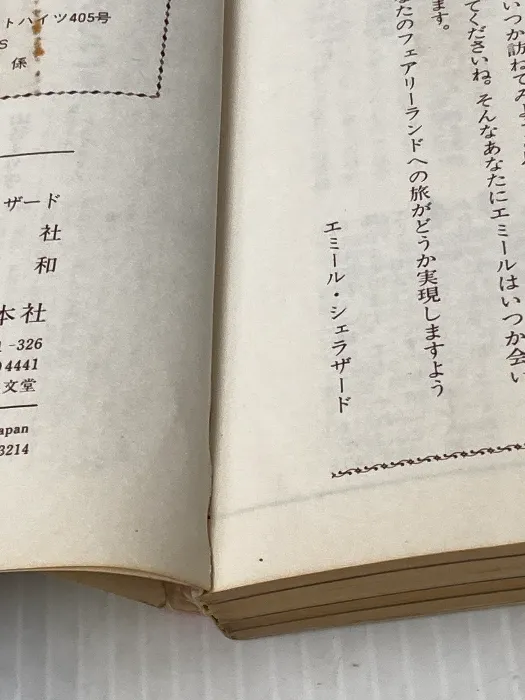 いつか訪ねてみよ
てくださいね。そんなあなたにエミールはいつか会い
ます。
なたのフェアリーランドへの旅がどうか実現しますよう
エミール・シェラザード
トハイツ405号
S
係
ザード
社
和
本社
-326
4441
文堂
apan
3214